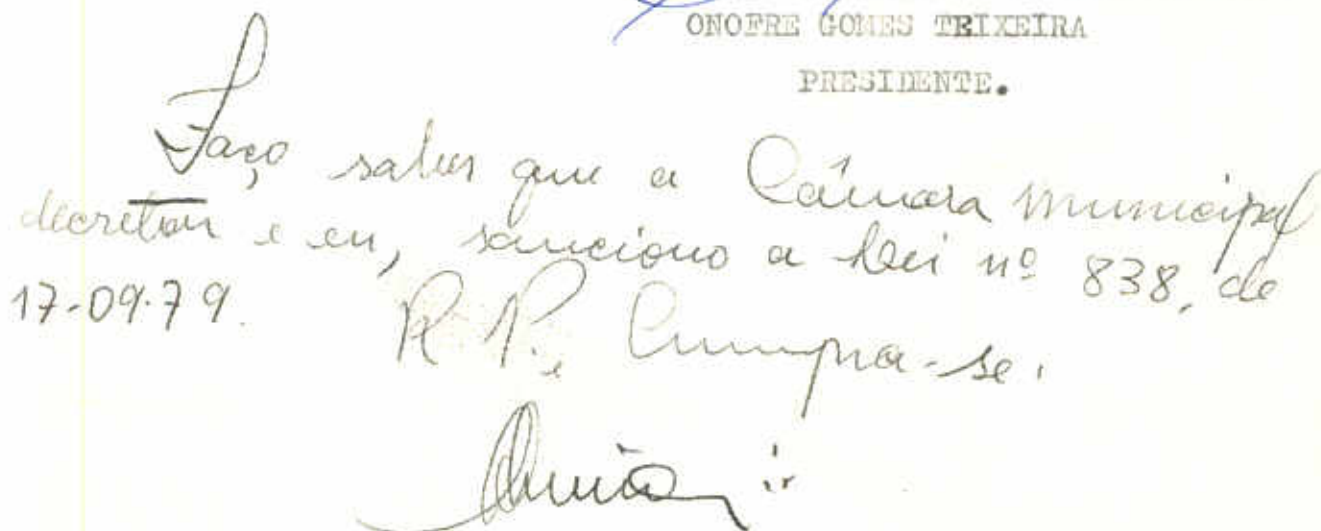 ONOFRE GOMES TEIXEIRA
PRESIDENTE.
Faço saber que a Câmara Municipal
decretou e eu, sanciono a Lei nº 838, de
17-09-79.
R. P. e Cumpra-se.